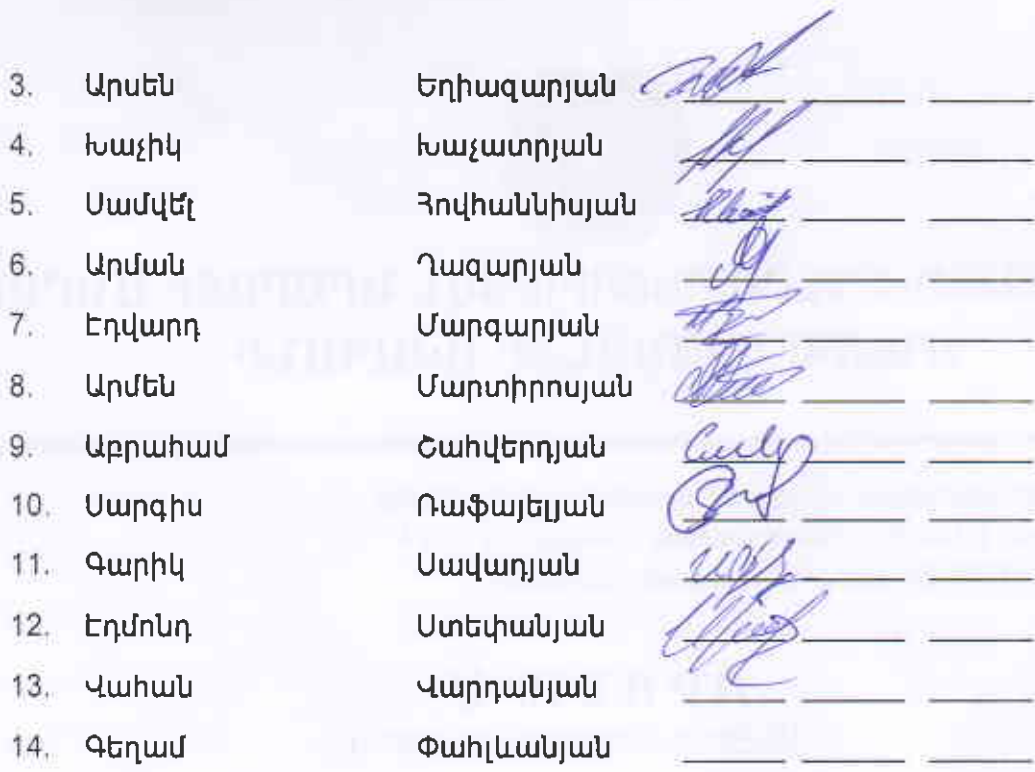 3. Արսեն Եղիազարյան
4. Խաչիկ Խաչատրյան
5. Սամվել Հովհաննիսյան
6. Արման Ղազարյան
7. Էդվարդ Մարգարյան
8. Արմեն Մարտիրոսյան
9. Աբրահամ Շահվերդյան
10. Սարգիս Ռաֆայելյան
11. Գարիկ Սավադյան
12. Էդմոնդ Ստեփանյան
13. Վահան Վարդանյան
14. Գեղամ Փահլևանյան